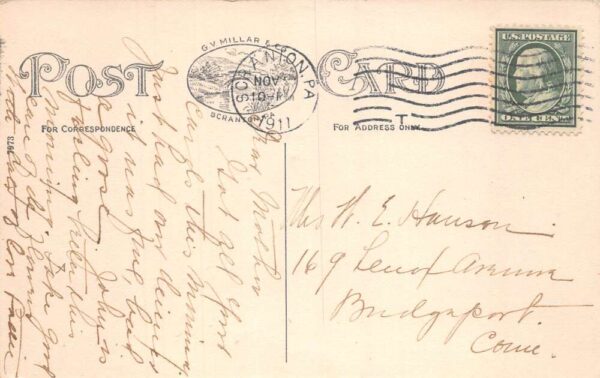 POST CARD
G.V. MILLAR & CO.
SCRANTON, PA.
SCRANTON, PA
NOV
10
1911
T
U.S. POSTAGE
ONE CENT
FOR CORRESPONDENCE
FOR ADDRESS ONLY
Dear Mother
Got yours
Cards this morning
Just had our dinner
it was fine, had
a goose. John is
feeling better this
morning. Take good
care of
With love
Mrs W. E. Hanson.
169 Lenox Avenue
Bridgeport.
Conn.